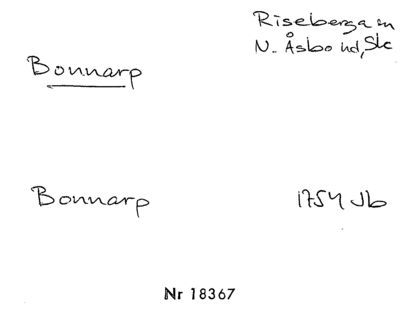 Riseberga sn
N. Åsbo hd, Sk
Bonnarp
Bonnarp 1754 Jb
Nr 18367